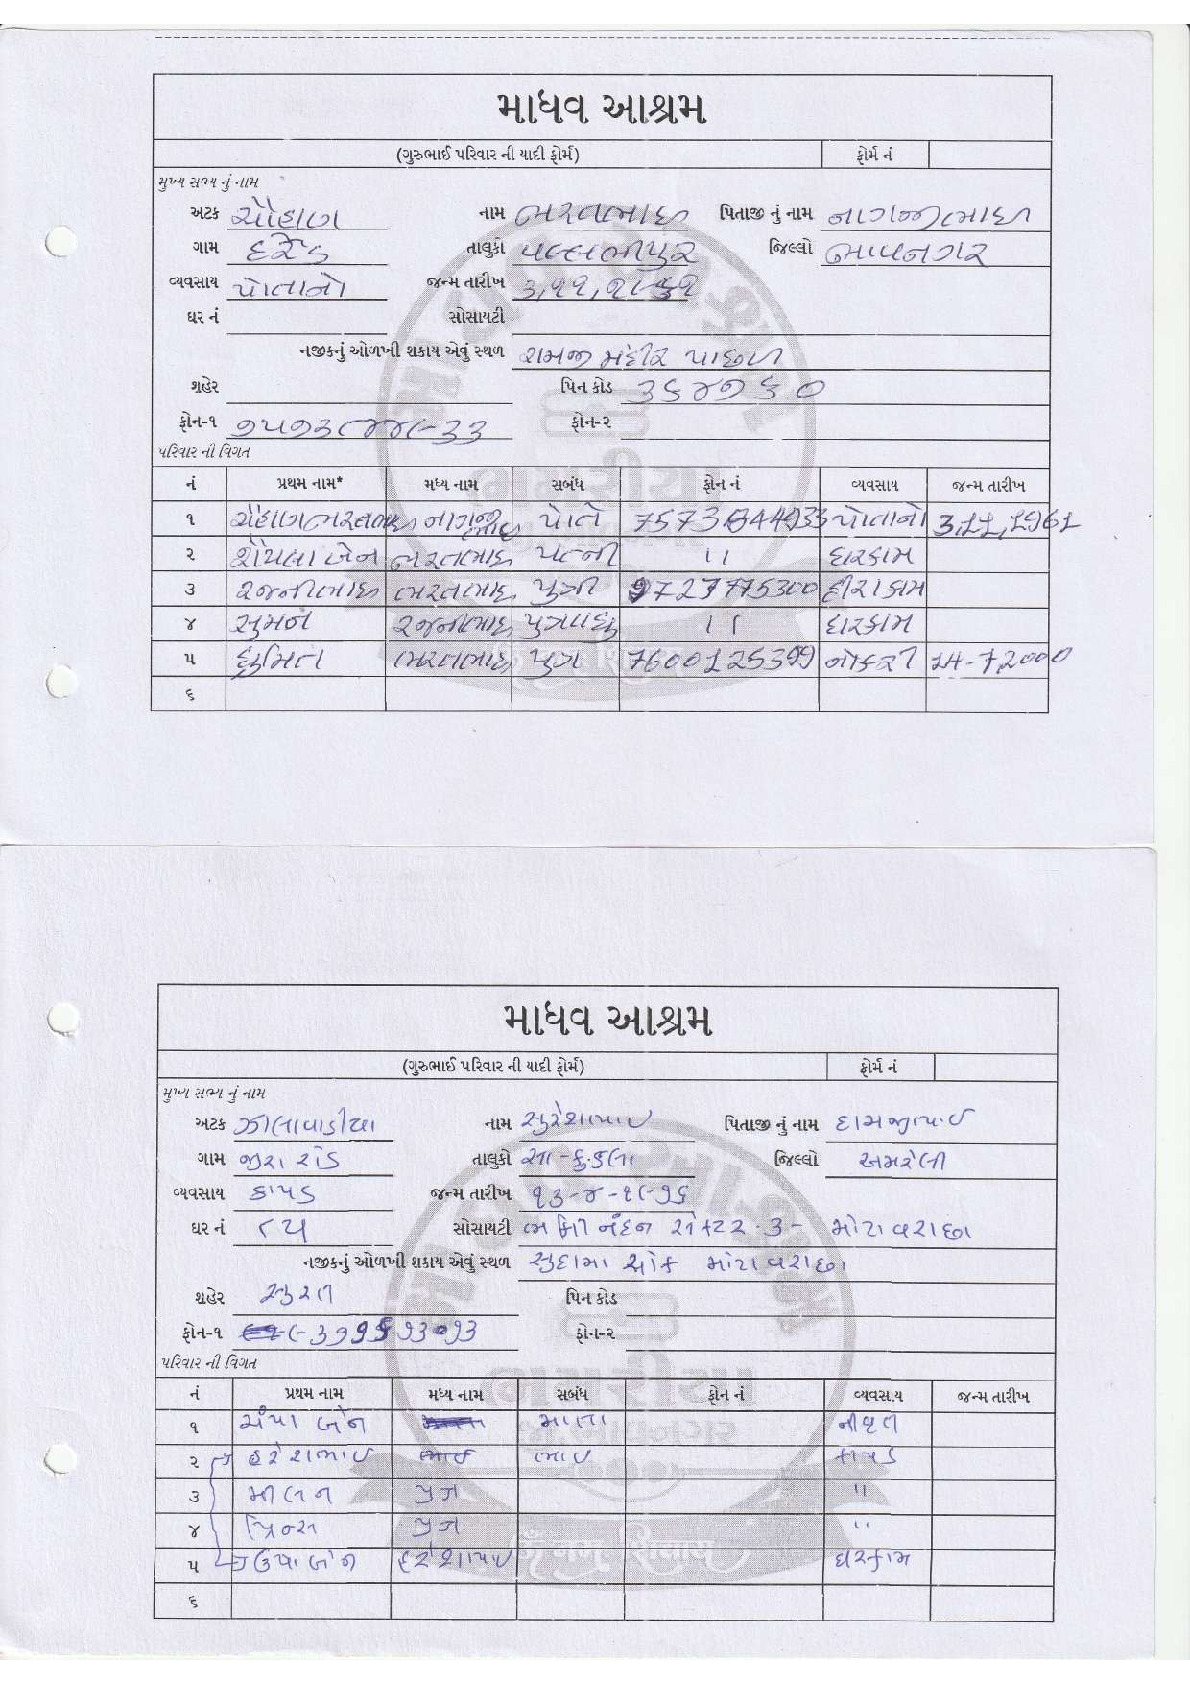 માધવ આશ્રમ
(ગુરુભાઈ પરિવાર ની યાદી ફોર્મ) ફોર્મ નં
મુખ્ય સભ્ય નું નામ
અટક ચૌહાણ નામ ભરતભાઈ પિતાજી નું નામ નાગજીભાઈ
ગામ દરેડ તાલુકો વલ્લભીપુર જિલ્લો ભાવનગર
વ્યવસાય પોતાનો જન્મ તારીખ ૩,૧૧,૧૯૬૧
ઘર નં સોસાયટી
નજીકનું ઓળખી શકાય એવું સ્થળ રામજી મંદીર પાછળ
શહેર પિન કોડ ૩૬૪૭૬૦
ફોન-૧ ફોન-૨
પરિવાર ની વિગત
નં પ્રથમ નામ* મધ્ય નામ સબંધ ફોન નં વ્યવસાય જન્મ તારીખ
૧ ચૌહાણ ભરતભાઈ નાગજીભાઈ પોતે પોતાનો 3,11,1961
૨ બેન ભરતભાઈ પત્ની ।। ઘરકામ
૩ રજનીભાઈ ભરતભાઈ પુત્ર 9727775300 હીરાકામ
૪ સુમન રજનીભાઈ પુત્રવધુ ।। ઘરકામ
૫ ભરતભાઈ પુત્ર નોકરી 14-7,2000
૬
માધવ આશ્રમ
(ગુરુભાઈ પરિવાર ની યાદી ફોર્મ) ફોર્મ નં
મુખ્ય સભ્ય નું નામ
અટક ઝાલાવાડીયા નામ સુરેશભાઈ પિતાજી નું નામ દામજીભાઈ
ગામ જીરા રોડ તાલુકો સા-કુંડલા જિલ્લો અમરેલી
વ્યવસાય કાપડ જન્મ તારીખ ૧૩-૪-૧૯૭૬
ઘર નં ૮૫ સોસાયટી ભક્તિ નંદન સેક્ટર-૩- મોટા વરાછા
નજીકનું ઓળખી શકાય એવું સ્થળ સુદામા ચોક મોટા વરાછા
શહેર સુરત પિન કોડ
ફોન-૧ ફોન-૨
પરિવાર ની વિગત
નં પ્રથમ નામ મધ્ય નામ સબંધ ફોન નં વ્યવસાય જન્મ તારીખ
૧ ચંપા બેન માતા નીવૃત
૨ હરેશભાઈ ભાઈ ભાઈ કાપડ
૩ મીલન પુત્ર "
૪ પ્રિન્સ પુત્ર "
૫ ઉષા બેન હરેશભાઈ ઘરકામ
૬